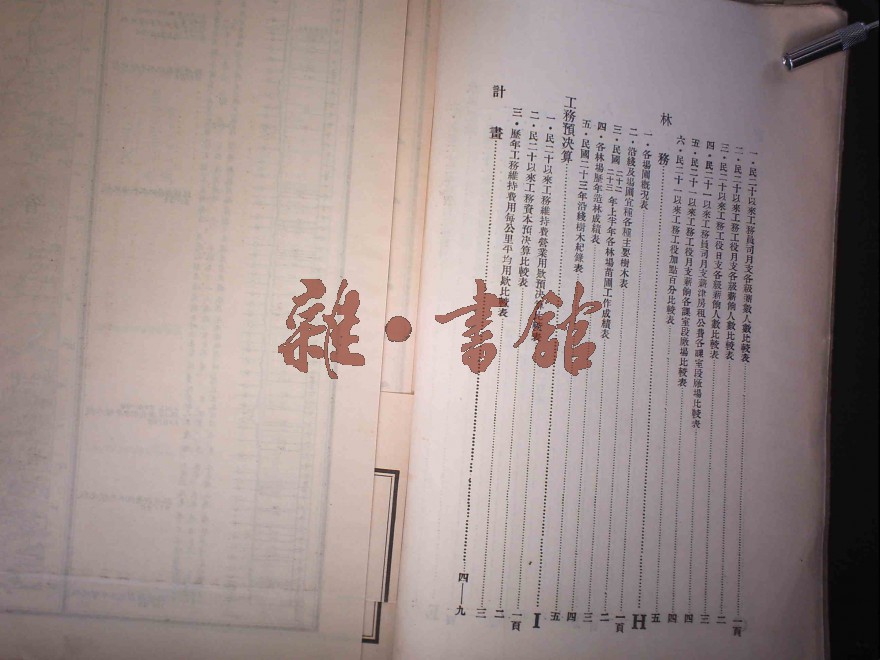 一・民二十以來工務員司月支各級薪數人數比較表 一頁
二・民二十以來工務工役月支各級薪餉人數比較表 二
三・民二十以來工務工役日支各級薪餉人數比較表 三
四・民二十一以來工務員司月支薪津房租公費各課室段廠場比較表 四
五・民二十一以來工務工役月支薪餉各課室段廠場比較表 四
六・民二十一以來工務工役加點百分比較表 五
林務 H
一・各場園概況表 一頁
二・沿綫及場園宜種各種主要樹木表 二
三・民國二十二二十三年上半年各林場苗圃工作成績表 三
四・各林場歷年造林成績表 四
五・民國二十三年沿綫樹木紀錄表 五
工務預決算 I
一・民二十以來工務維持費營業用款預決算比較表 一頁
二・民二十以來工務資本預決算比較表 二
三・歷年工務維持費用每公里平均用款比較表 三
計畫 四—九
雜・書館